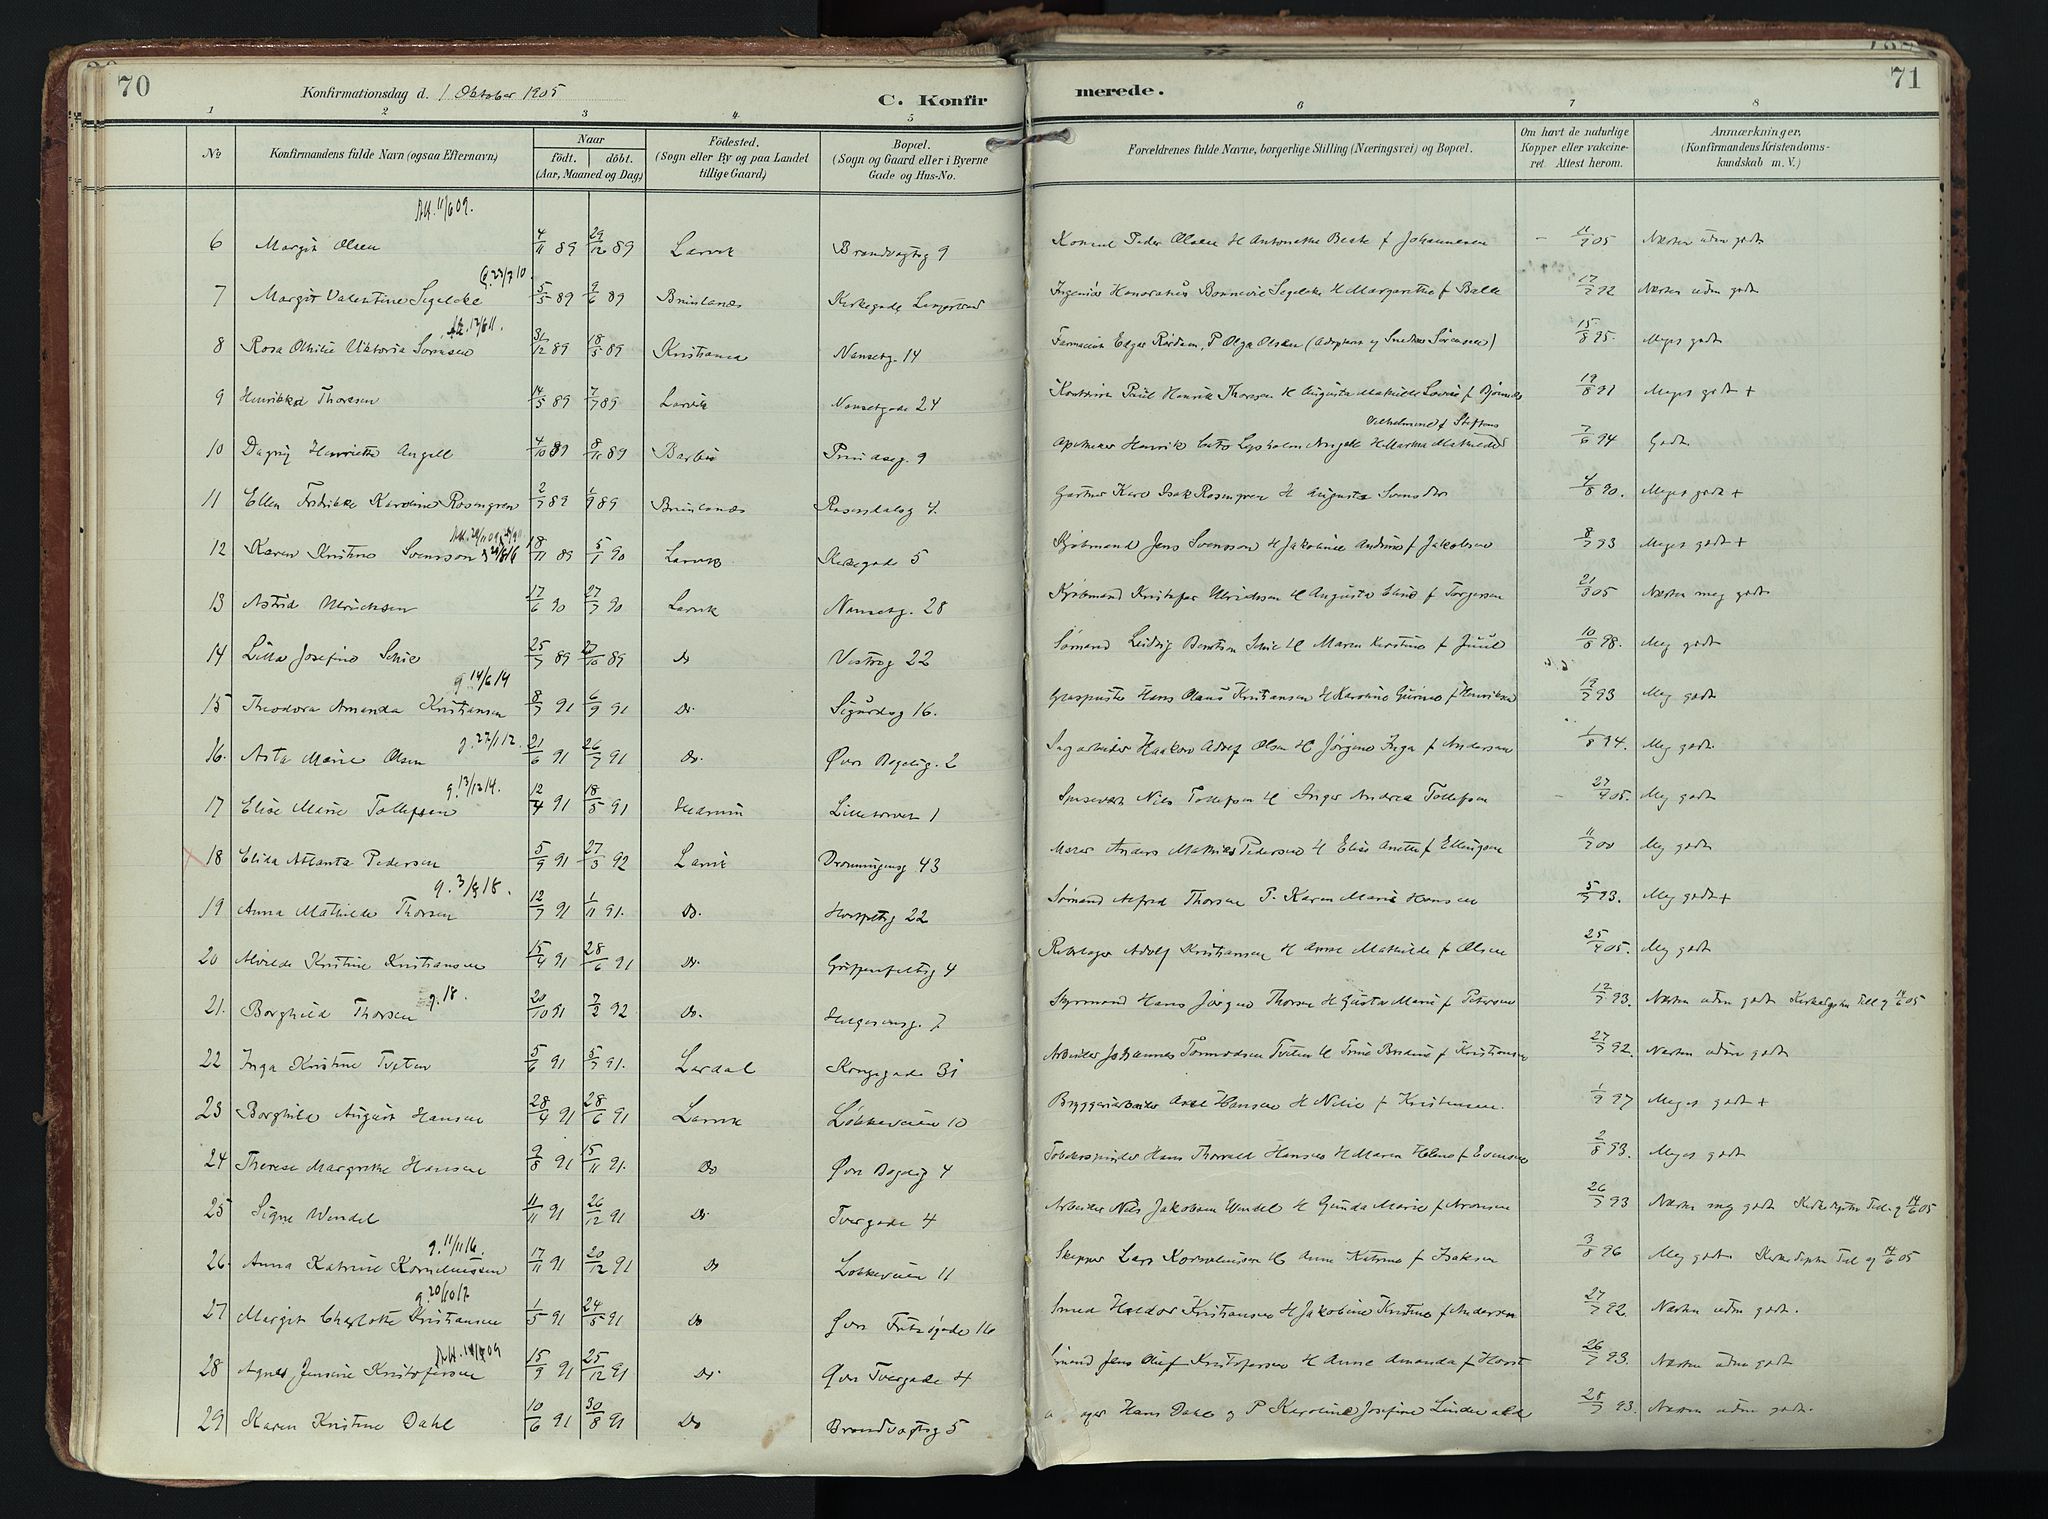 70
Konfirmationsdag d. 1 Oktober 1905
C. Konfir
merede.
71
1 2 3 4 5 6 7 8
No
Konfirmandens fulde Navn (ogsaa Efternavn)
Naar
födt. döbt.
(Aar, Maaned og Dag)
Födested.
(Sogn eller By og paa Landet
tillige Gaard)
Bopæl.
(Sogn og Gaard eller i Byerne
Gade og Hus-No.
Forældrenes fulde Navne, borgerlige Stilling (Næringsvei) og Bopæl.
Om havt de naturlige
Kopper eller vakcine-
ret. Attest herom.
Anmærkninger,
(Konfirmandens Kristendoms-
kundskab m. V.)
Att. 11/6 09.
6 Margit Olsen 4/11 89 29/12 89 Larvik Brandvagtsg 9 Konsul Peder Olsen H Antonette Beate f Johannesen – 11/9 05 Næsten uden godt
g. 23/7 10.
7 Margit Valentine Segelcke 5/5 89 9/6 89 Brunlanæs Kirkegade Langestrand Ingeniør Honoratus Bonnevie Segelcke H Margarethe f Balle 17/7 92 Næsten uden godt
Att. 13/6 11.
8 Rosa Othilie Viktoria Sørensen 31/12 89 18/5 89 Kristiania Nansetg. 14 Farmaceut Edgar Rørdam, P Olga Olsen (Adopteret af Snedker Sørensen) 15/8 95. Meget godt
9 Henrikke Thoresen 14/5 89 7/7 89 Larvik Nansetgade 24 Paul Henrik Thoresen H Augusta Mathilde Lovise f 19/8 91 Meget godt +
Vilhelmine f Steffens
10 Dagny Henriette Angell 4/10 89 8/11 89 Barbu Prindseg. 9 Apotheker Henrik Lysholm Angell H Martha Mathilde 7/6 94 Godt
11 Ellen Fredrikke Karoline Rosengren 2/7 89 1/9 89 Brunlanæs Rosendalsg 4. Gartner Karl Isak Rosengren H Augusta Svensdtr 4/8 90. Meget godt +
12 Karen Kristine Svensson 18/11 89 5/1 90 Larvik Kirkegade 5 Kjøbmand Jens Svensson H Jakobine Andrine f Jakobsen 8/7 93 Meget godt +
13 Astrid Ulrichsen 17/6 90 27/7 90 Larvik Nansetg. 28 Kjøbmand Kristofer Ulrichsen H Augusta Elise f Torgersen 21/3 05 Næsten meg godt
14 Lilla Josefine Schie 25/7 89 27/10 89 Do Vestreg 22 Sømand Ludvig Berntsen Schie H Maren Kirstine f Juul 10/8 98. Meg godt
g. 14/6 14
15 Theodora Amanda Kristiansen 8/7 91 6/9 91 Do. Sigurdsg 16. Glaspuster Hans Olaus Kristiansen H Karoline Gurine f Henriksen 19/7 93 Meg godt
g. 27/1 12.
16. Asta Marie Olsen 21/6 91 26/7 91 Do. Øvre Bøgelig. 2 Sagarbeider Haakon Adolf Olsen H Jørgine Inga f Andersen 1/8 94. Meg godt
g. 13/12 14.
17 Elise Marie Tollefsen 12/4 91 18/5 91 Hedrum Lilletorvet 1 Spisevært Nils Tollefsen H Inger Andrea Tollefsen – 27/9 05. Meg godt
18 Elida Atlanta Pedersen 5/9 91 27/3 92 Larvik Dronningensg 43 Murer Anders Mathias Pedersen H Elise Anette f Ellingsen 11/9 00 Meg godt
g. 3/8 18.
19 Anna Mathilde Thorsen 12/7 91 1/11 91. Do. Hospitalsg 22 Sømand Alfred Thorsen P. Karen Marie Hansen 5/7 93. Meg godt +
20 Alvilde Kristine Kristiansen 15/4 91 28/6 91 Do. Griffenfeltsg 4 Rebslager Adolf Kristiansen H Anne Mathilde f Olsen 25/4 05. Meg godt
g. 18.
21. Borghild Thorsen 20/10 91 7/2 92 Do. Helgesensg. 7 Styrmand Hans Jørgen Thorsen H Gusta Marie f Petersen 12/7 93. Næsten uden godt Kirkedøpte Till g 14/6 05
22 Inga Kristine Tveten 5/6 91 5/7 91. Lardal Kongegade 31 Arbeider Johannes Tormodsen Tveten H Trine Bredine f Kristiansen 27/7 92. Næsten uden godt
23 Borghild August Hansen 28/4 91 28/6 91 Larvik Løkkeveien 10 Bryggeriarbeider Axel Hansen H Nilie f Kristensen. 1/9 97 Meget godt +
24 Therese Margrethe Hansen 9/8 91 15/11 91. Do Øvre Bøgelig 4 Tobaksspinder Hans Thorvald Hansen H Maren Helene f Evensen 2/8 93. Meget godt
25 Signe Wendel 11/11 91 26/12 91 Do. Tvergade 4 Arbeider Nils Jakobsen Wendel H Gunda Marie f Aronsen 26/7 93 Næsten meg godt Kirkedøpte Till g 14/6 05
g. 11/11 16.
26. Anna Katrine Korneliussen 17/11 91 20/12 91 Do Løkkeveien 11 Skipper Lars Korneliussen H Anne Katrine f Isaksen 3/8 96 Meg godt Kirkedøpte Till g 14/6 05
g. 20/10 17.
27 Margit Charlotte Kristiansen 1/5 91 24/5 91 Do Øvre Fritzøgade 16 Smed Haldor Kristiansen H Jakobine Kristine f Andersen 27/7 92. Næsten uden godt.
Att. 14/4 09
28 Agnes Jensine Kristofersen 15/9 91 25/12 91 Do. Øvre Tvergade 4 Sømand Jens Oluf Kristofersen H Anne Amanda f Horst 26/7 93. Næsten uden godt
29 Karen Kristine Dahl 10/6 91 30/8 91 Do Brandvagtsg 5 Hans Dahl g P Karoline Josefine Lindevald 28/7 93. Næsten uden godt.